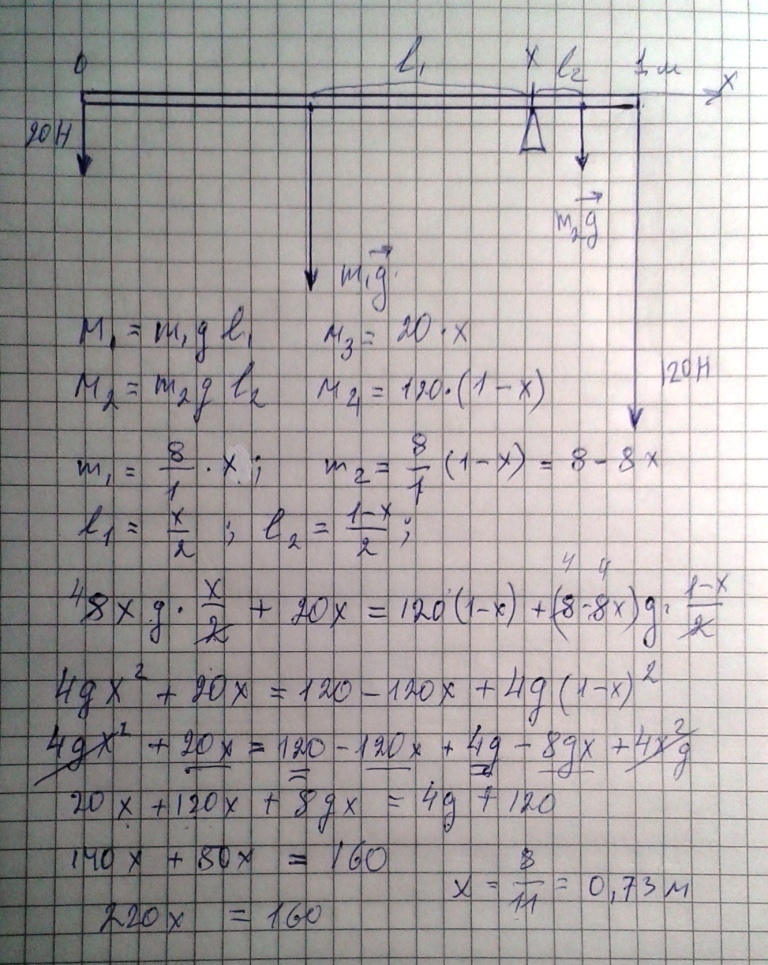 0 l₁ x l₂ 1 м x
20Н
m₂g⃗
m₁g⃗
120Н
M₁ = m₁ g l₁ M₃ = 20 · x
M₂ = m₂ g l₂ M₄ = 120·(1-x)
m₁ = 8/1 · x ; m₂ = 8/1 (1-x) = 8 - 8x
l₁ = x/2 ; l₂ = (1-x)/2 ;
4 4
⁴8x g · x/2 + 20x = 120(1-x) + (8-8x)g · (1-x)/2
4gx² + 20x = 120 - 120x + 4g(1-x)²
4gx² + 20x = 120 - 120x + 4g - 8gx + 4x²g
20x + 120x + 8gx = 4g + 120
140x + 80x = 160
x = 8/11 = 0,73 м
220x = 160